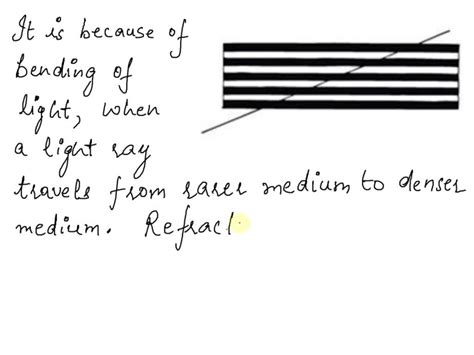 It is because of
bending of
light, when
a light ray
travels from rarer medium to denser
medium. Refract